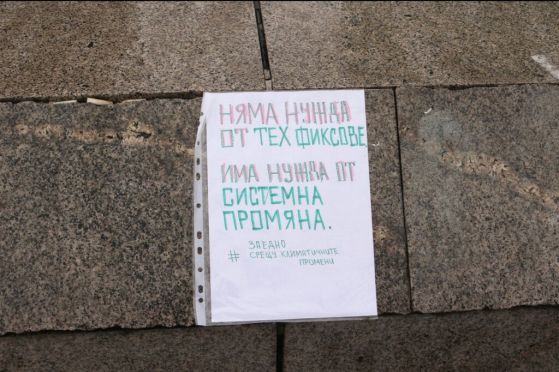 НЯМА НУЖДА
ОТ ТЕХ ФИКСОВЕ
ИМА НУЖДА ОТ
СИСТЕМНА
ПРОМЯНА.
# ЗАЕДНО
СРЕЩУ КЛИМАТИЧНИТЕ
ПРОМЕНИ